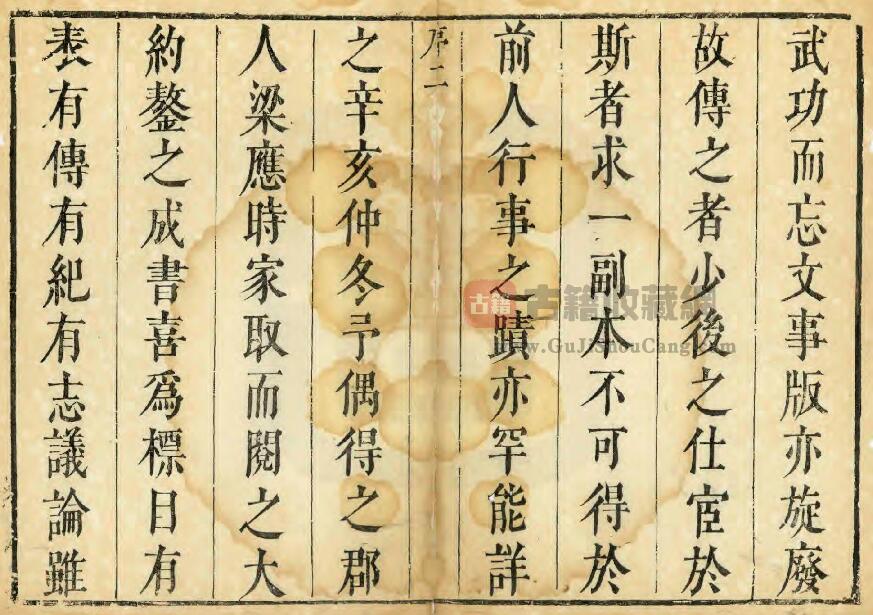 武功而忘文事版亦旋廢
故傳之者少後之仕宦於
斯者求一副本不可得於
前人行事之蹟亦罕能詳
序二
之辛亥仲冬予偶得之郡
人梁應時家取而閱之大
約鏊之成書喜為標目有
表有傳有紀有志議論雖
古籍 古籍收藏網
www.GuJiShouCang.com